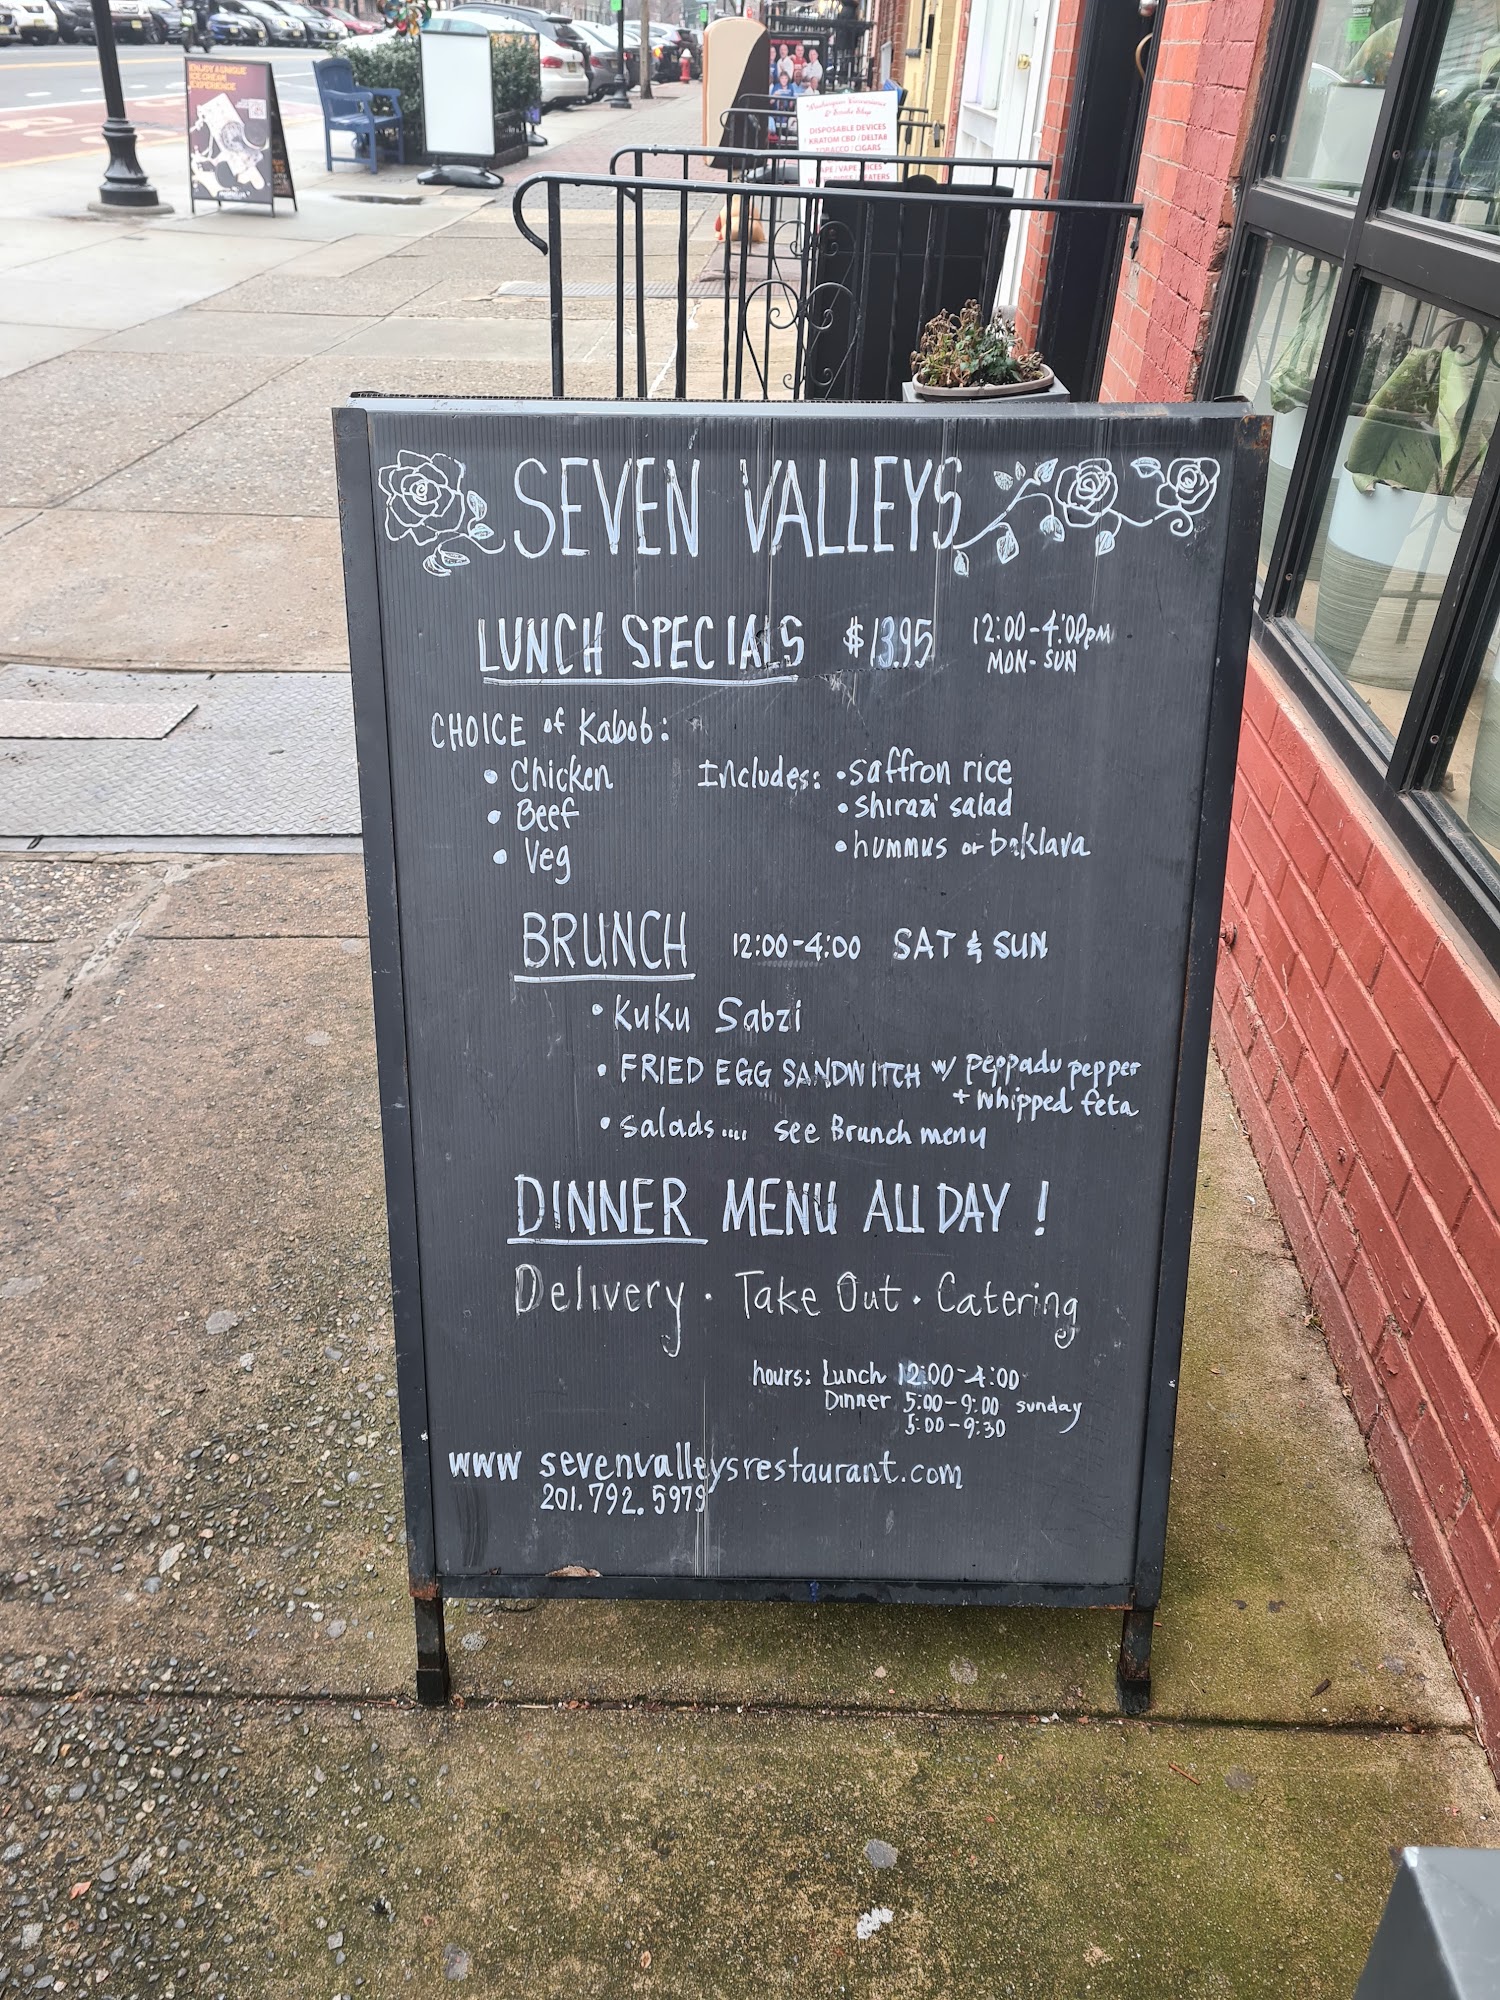 ENJOY A UNIQUE
ICE CREAM
EXPERIENCE
DISPOSABLE DEVICES
KRATOM CBD / DELTA8
TOBACCO / CIGARS
SEVEN VALLEYS
LUNCH SPECIALS $13.95 12:00-4:00pm
MON-SUN
CHOICE of Kabob:
• Chicken Includes: • saffron rice
• Beef • shirazi salad
• Veg • hummus or baklava
BRUNCH 12:00-4:00 SAT & SUN
• Kuku Sabzi
• FRIED EGG SANDWITCH w/ peppadu pepper
+ whipped feta
• salads.... see Brunch menu
DINNER MENU ALL DAY !
Delivery · Take Out · Catering
hours: Lunch 12:00-4:00
Dinner 5:00-9:00 sunday
5:00-9:30
www sevenvalleysrestaurant.com
201.792.5979